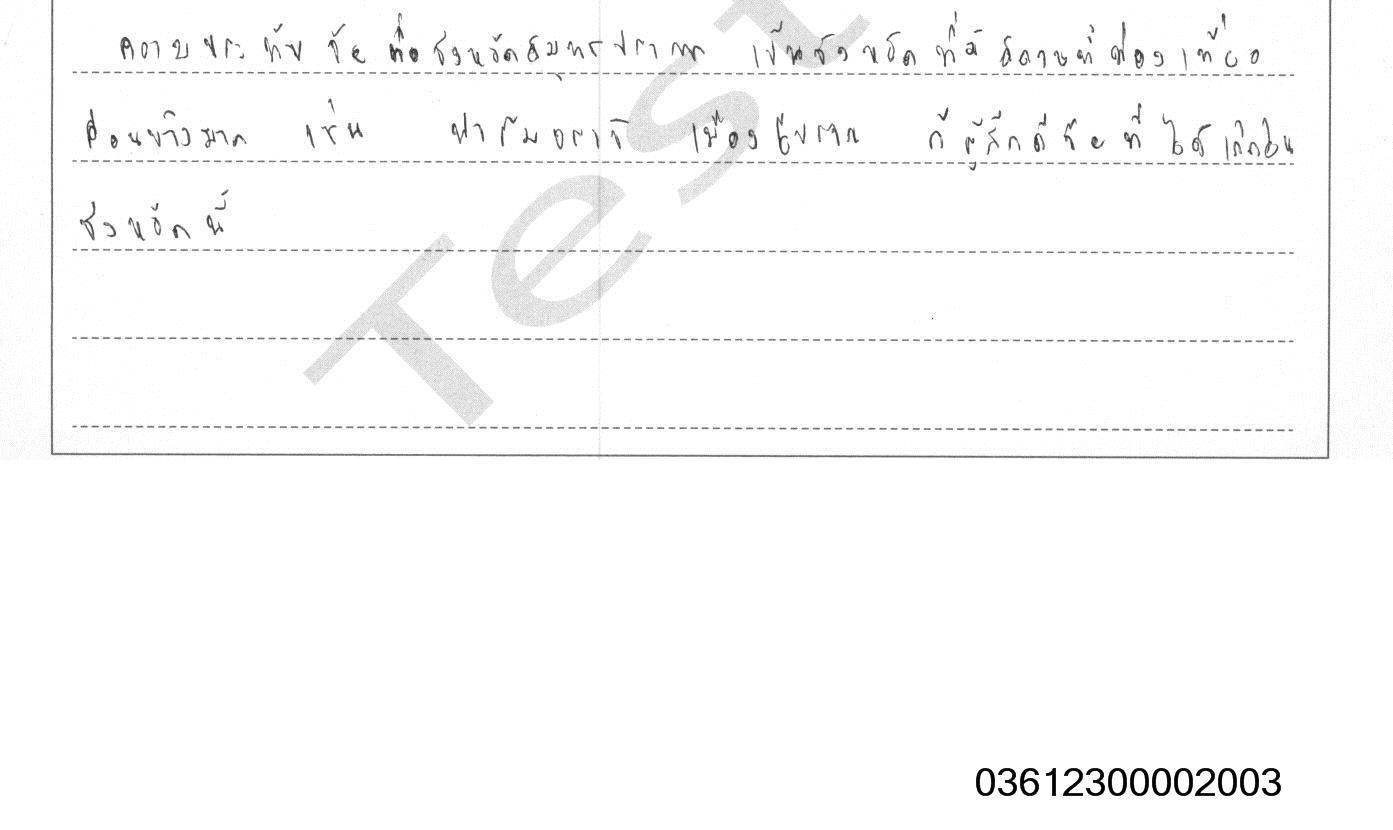 ความประทับใจ คือจังหวัดสมุทรปราการ เป็นจังหวัดที่มี สถานที่ท่องเที่ยว
ค่อนข้างมาก เช่น ฟาร์มจระเข้ เมืองโบราณ ก็รู้สึกดีใจ ที่ได้เกิดใน
จังหวัดนี้
Test
03612300002003